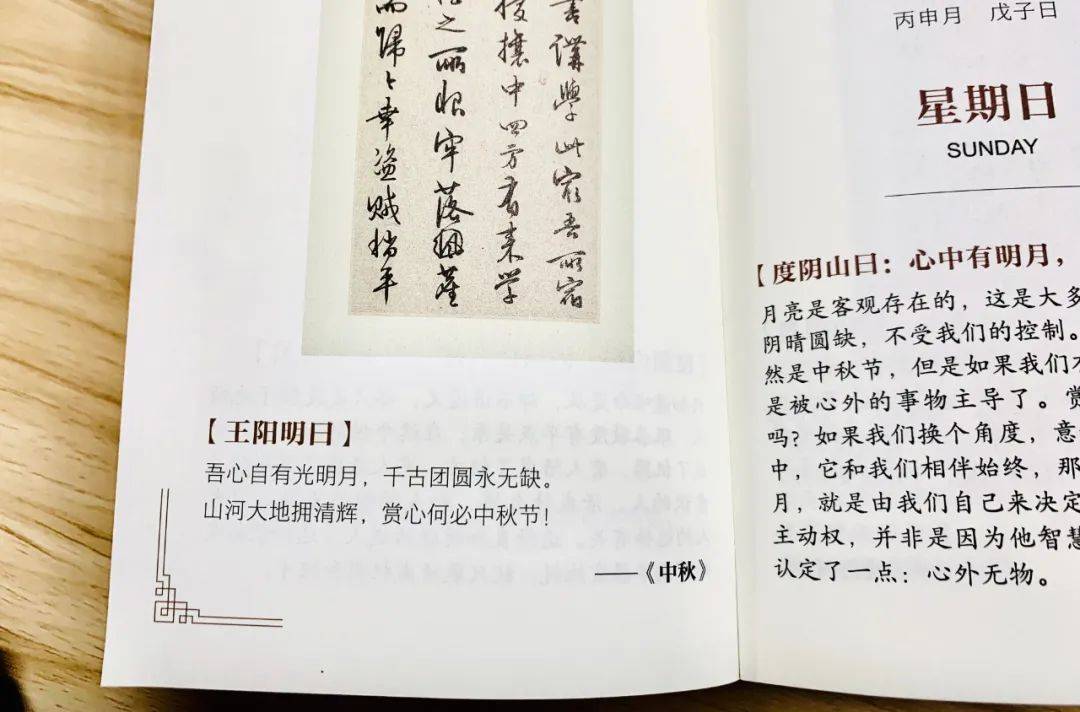 書講學此最吾所宿
擾攘中四方有來学
之丽恨牢落羁
而歸〻幸盗贼稍平
【王阳明曰】
吾心自有光明月，千古团圆永无缺。
山河大地拥清辉，赏心何必中秋节！
——《中秋》
丙申月 戊子日
星期日
SUNDAY
【度阴山曰：心中有明月，
月亮是客观存在的，这是大多
阴晴圆缺，不受我们的控制。
然是中秋节，但是如果我们
是被心外的事物主导了。赏
吗？如果我们换个角度，意
中，它和我们相伴始终，那
月，就是由我们自己来决定
主动权，并非是因为他智慧
认定了一点：心外无物。